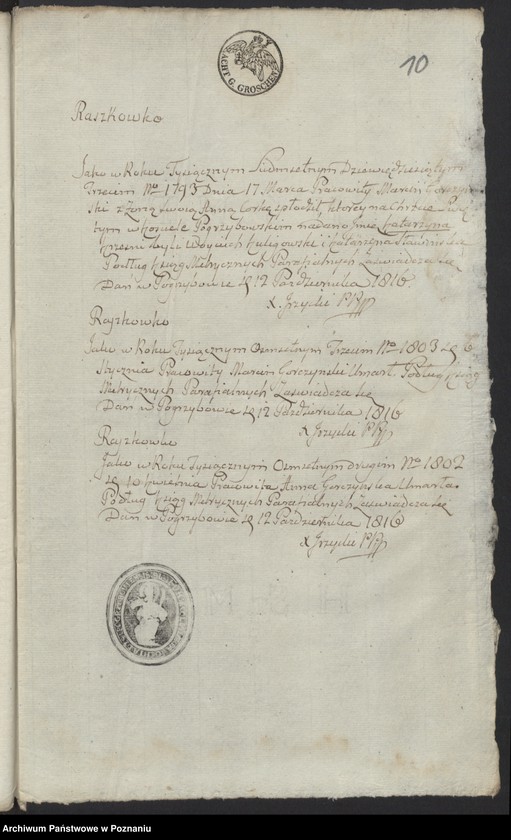 ACHT G. GROSCHEN
10
Raszkowko
Jako w Roku Tysiącznym Siedmsetnym Dziewięдziesiątym
Trzecim No 1793 Dnia 17 Marca Pracowity Marcin Gorczyn
ski z Żoną swoią Anną Corkę spłodził, ktorey na Chrtue Swię
tym w Kościele Pogrzybowskim nadano Imie Katarzyna
przeciw byli Woyciech Kuligowski i Katarzyna
Podług Xiąg Metrycznych Parafialnych Zaświadcza się
Dań w Pogrzybowie d 12 Października 1816
X. Jrzycki PP
Raszkowko
Jako w Roku Tysiącznym Osmsetnym Trzecim No 1803 d 6
Stycznia Pracowity Marcin Gorczynski Umarł. Podług Xiąg
Metrycznych Parafialnych Zaświadcza się
Dań w Pogrzybowie d 12 Października 1816
X Jrzycki PP
Raszkowko
Jako w Roku Tysiącznym Osmsetnym drugim No 1802
d 10 Kwietnia Pracowita Anna Gorczynska Umarła.
Podług Xiąg Metrycznych Parafialnych Zaświadcza się
Dań w Pogrzybowie d 12 Października 1816
X Jrzycki PP
Archiwum Państwowe w Poznaniu